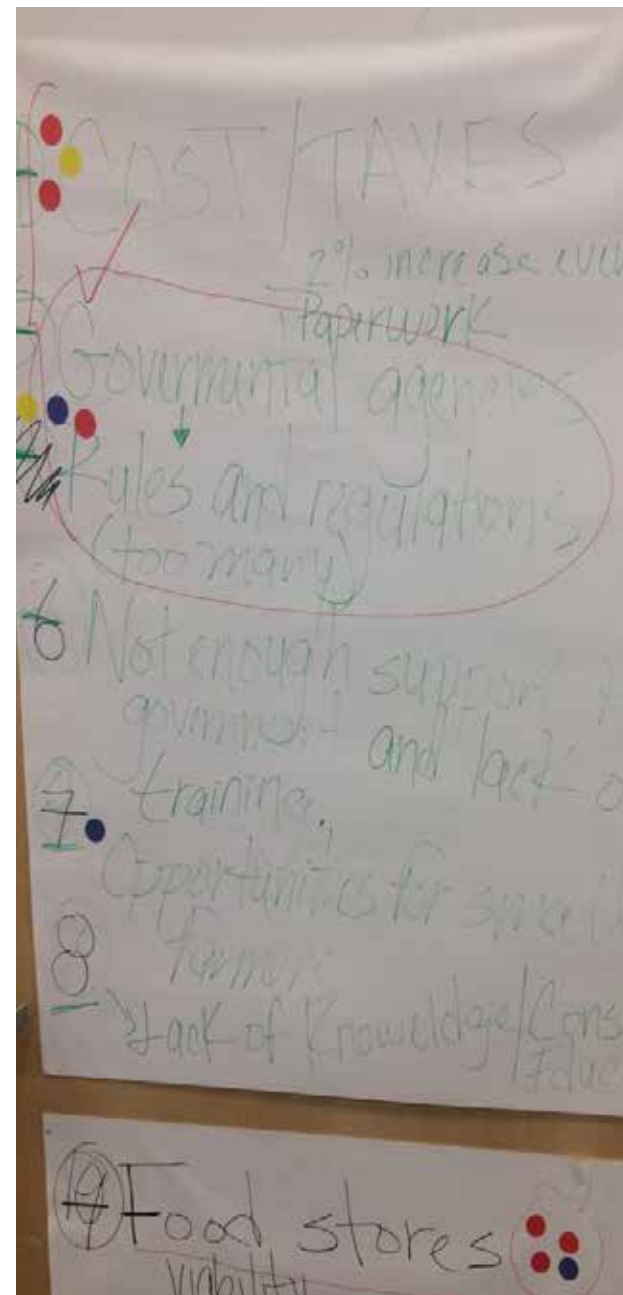 COST/TAXES
2% increase
Paperwork
Governmental agencies
Rules and regulations
(too many)
6 Not enough support
government and lack
training.
7
Opportunities for
farmers
8
Lack of Knoweldge/
Food stores
viability